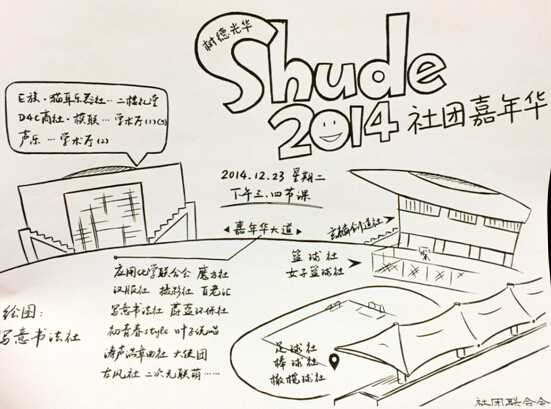 树德光华
Shude
2014 社团嘉年华
E族·猫耳乐器社…二楼礼堂
D4C商社·模联…学术厅(1)(3)
声乐…学术厅(2)
2014.12.23 星期二
下午三、四节课
嘉年华大道
玄麟创造社
篮球社
女子篮球社
应用化学联合会 魔方社
汉服社 摄影社 百老汇
写意书法社 蔚蓝环保社
初青春style 叶子说唱
涛声温章曲社 大使团
古风社 二次元联萌……
绘图:
写意书法社
足球社
棒球社
橄榄球社
社团联合会